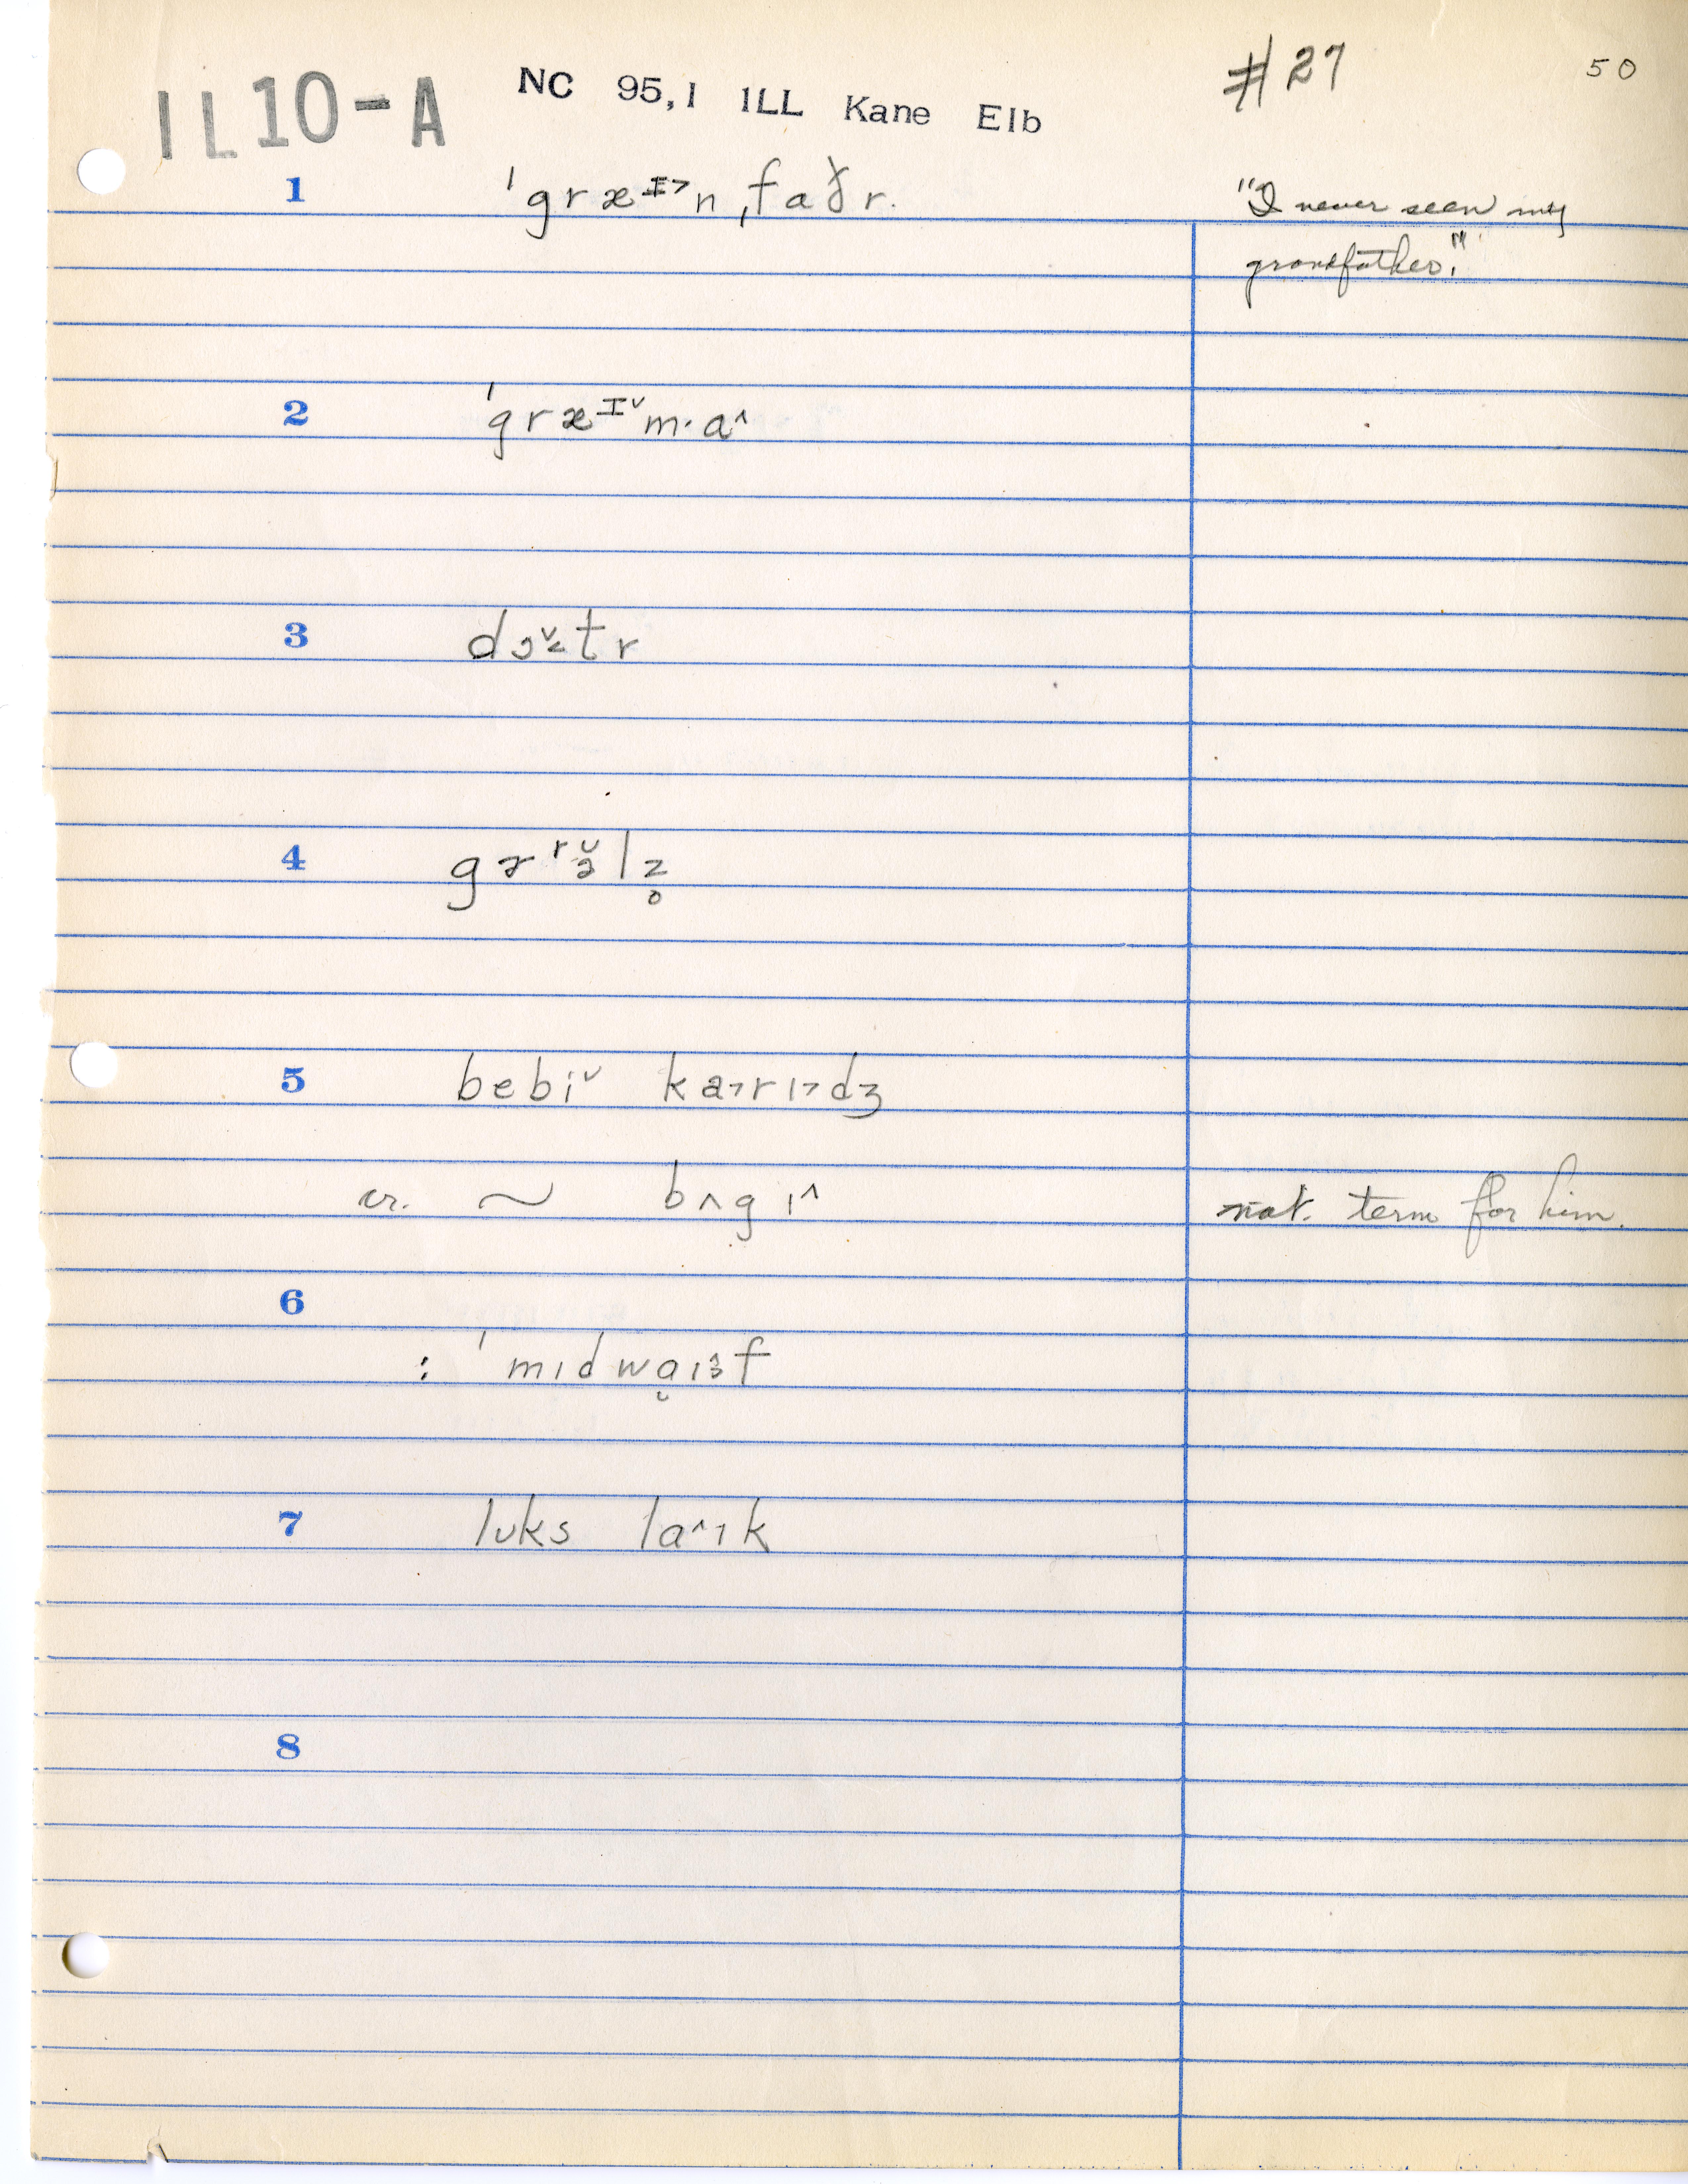 IL10-A NC 95,1 ILL Kane Elb #27 50
1 ˈgræɪ˃n ˌfaðr. "I never seen my
grandfather."
2 ˈgræɪ˅m·a˄
3 dɔ˅tr
4 gɚʳə̆lz̥
5 bebi˅ ka˃rɪ˃dʒ
cr. ~ bʌgɪ˄ nat. term for him.
6
: ˈmɪdwaɪf
7 lʊks la˄ɪk
8